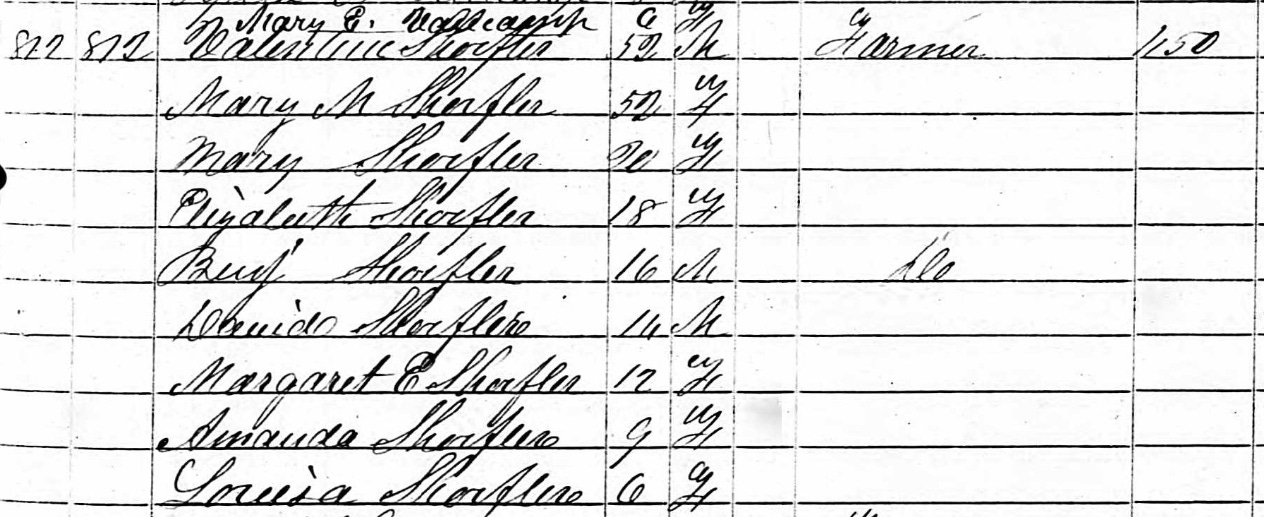 Mary E. Vancamp 6 F
812 812 Valentine Shoefler 52 M Farmer 1150
Mary M Shoefler 52 F
Mary Shoefler 20 F
Elizabeth Shoefler 18 F
Benj Shoefler 16 M Do
David Shoefler 14 M
Margaret E Shoefler 12 F
Amanda Shoefler 9 F
Louisa Shoefler 6 F